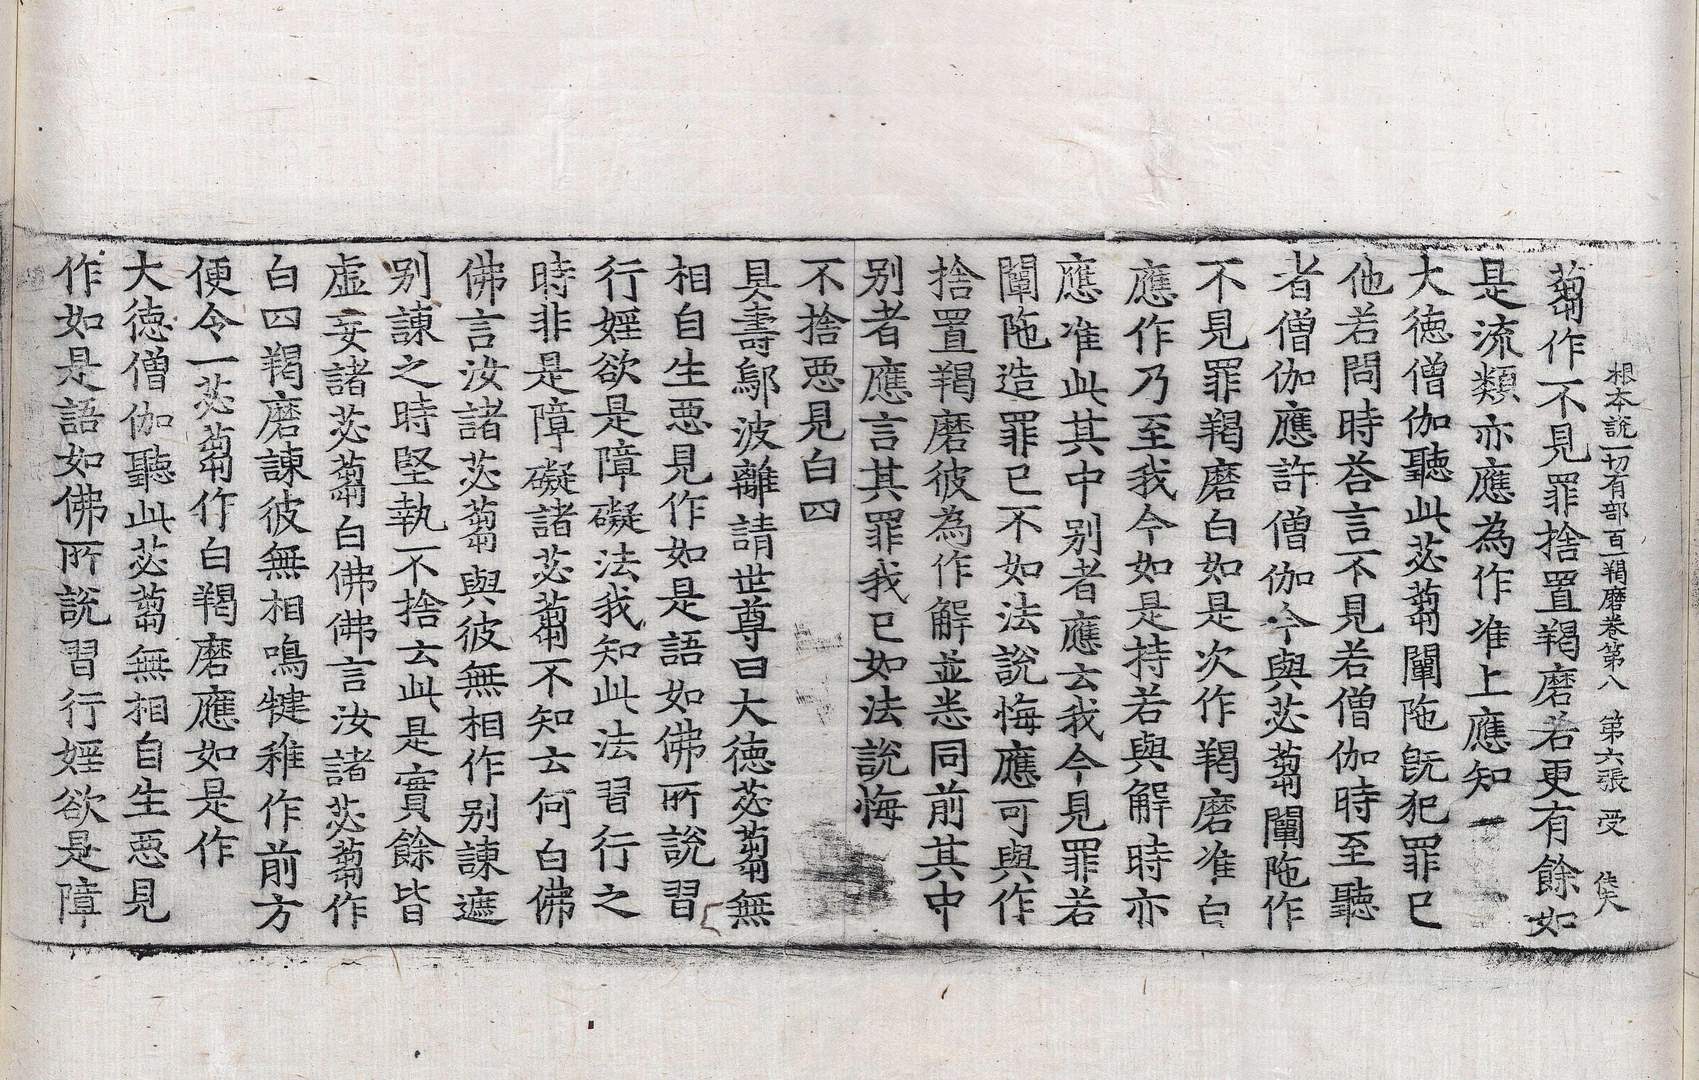 根本說一切有部百一羯磨卷第八 第六張 受
蒭作不見罪捨置羯磨若更有餘如
是流類亦應為作准上應知
大徳僧伽聽此苾蒭闡陁旣犯罪已
他若問時荅言不見若僧伽時至聽
者僧伽應許僧伽今與苾蒭闡陁作
不見罪羯磨白如是次作羯磨准白
應作乃至我今如是持若與解時亦
應准此其中别者應云我今見罪若
闡陁造罪已不如法說悔應可與作
捨置羯磨彼為作解並悉同前其中
别者應言其罪我已如法說悔
不捨惡見白四
具壽鄔波離請世尊曰大徳苾蒭無
相自生惡見作如是語如佛所說習
行婬欲是障礙法我知此法習行之
時非是障礙諸苾蒭不知云何白佛
佛言汝諸苾蒭與彼無相作别諫遮
别諫之時堅執不捨云此是實餘皆
虛妄諸苾蒭白佛佛言汝諸苾蒭作
白四羯磨諫彼無相鳴犍稚作前方
便令一苾蒭作白羯磨應如是作
大徳僧伽聽此苾蒭無相自生惡見
作如是語如佛所說習行婬欲是障